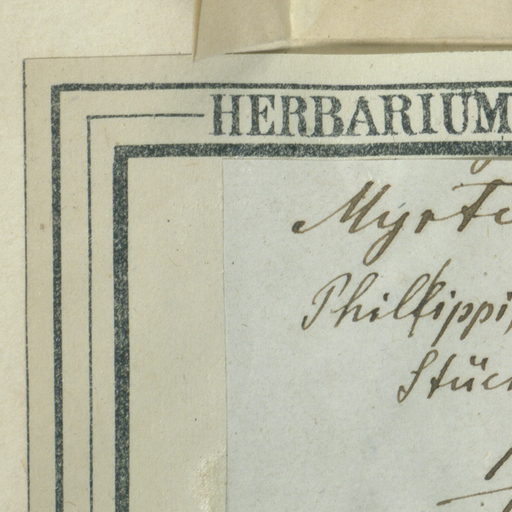 HERBARIUM
Myrte
Philippi,
Stück